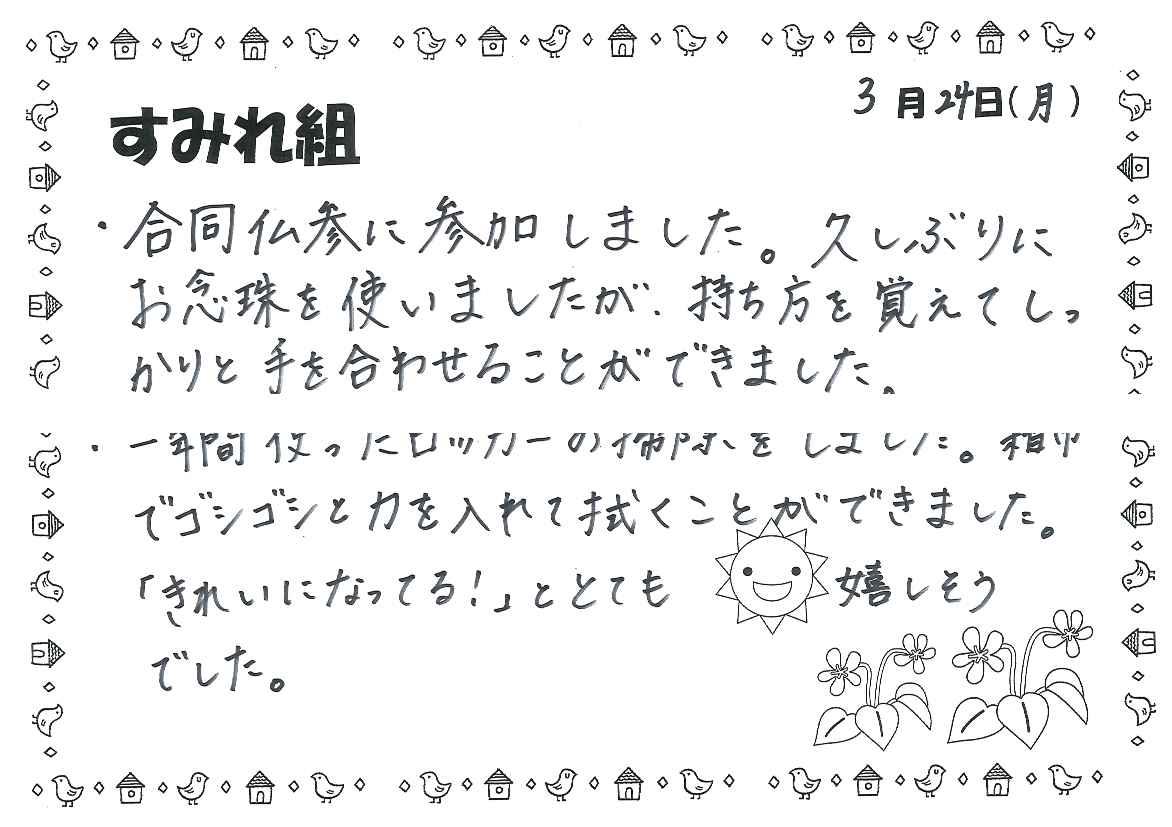 すみれ組
3月24日(月)
・合同仏参に参加しました。久しぶりに
お念珠を使いましたが、持ち方を覚えてしっ
かりと手を合わせることができました。
・一年間使ったロッカーの掃除をしました。
でゴシゴシと力を入れて拭くことができました。
「きれいになってる!」ととても嬉しそう
でした。